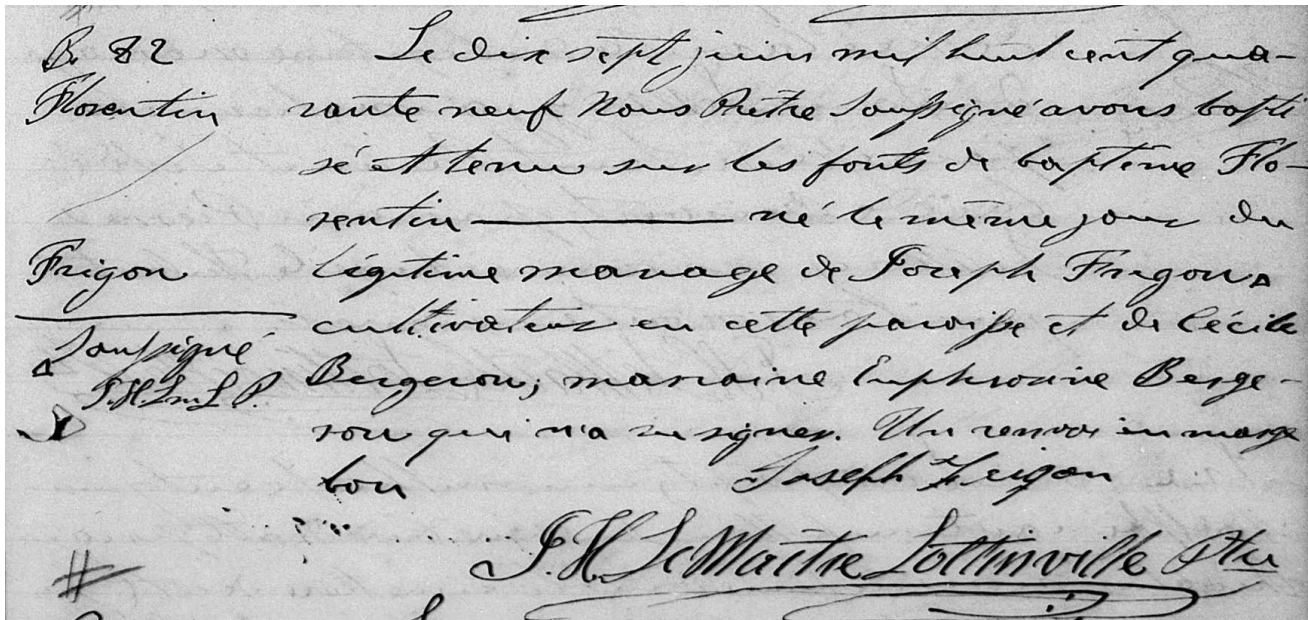 B. 82
Florentin
Frigon
Soussigné
J.H.Lm.L P.
Le dix sept juin mil huit cent qua-
rante neuf Nous Prêtre Soussigné avons bapti
sé et tenu sur les fonts de baptême Flo-
rentin né le même jour du
légitime mariage de Joseph Frigon
cultivateur en cette paroisse et de Cécile
Bergeron; marraine Euphrosine Berge-
ron qui n'a su signer. Un renvoi en marge
bon
Joseph Frigon
J. H. LeMaitre Lottinville Ptr
#